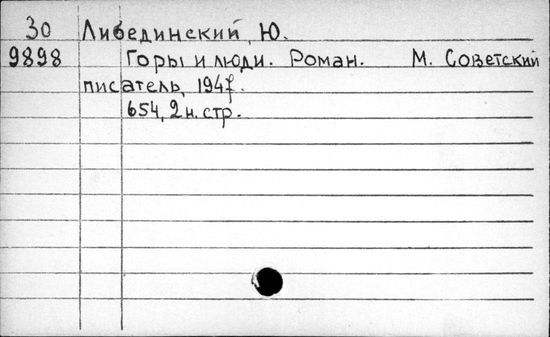 30 Либединский, Ю.
9898 Горы и люди. Роман. М. Советский
писатель, 1947.
654, 2 н. стр.